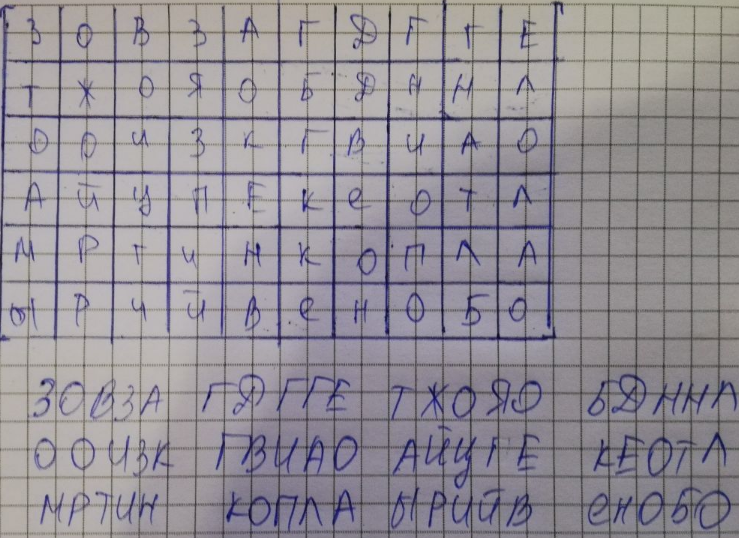 З О В З А Г Д Г Г Е
Т Ж О Я О Б Д Н Н Л
О О И З К Г В И А О
А Й Ц П Е К Е О Т Л
М Р Т И Н К О П Л А
Ы Р И Й В Е Н О Б О
ЗОВЗА ГДГГЕ ТЖОЯО БДННЛ
ООИЗК ГВИАО АЙЦГЕ КЕОТЛ
МРТИН КОПЛА ЫРИЙВ ЕНОБО